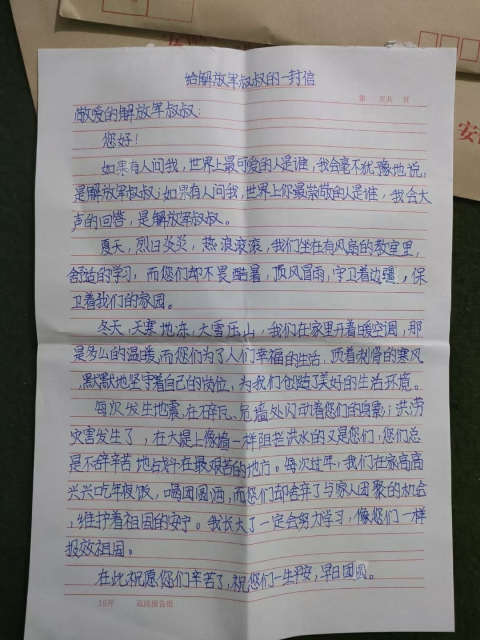 给解放军叔叔的一封信
第 页共 页
敬爱的解放军叔叔:
您好!
如果有人问我,世界上最可爱的人是谁,我会毫不犹豫地说,
是解放军叔叔;如果有人问我,世界上你最崇敬的人是谁,我会大
声的回答,是解放军叔叔。
夏天,烈日炎炎,热浪滚滚,我们坐在有风扇的教室里,
舒适的学习,而您们却不畏酷暑,顶风冒雨,守卫着边疆,保
卫着我们的家园。
冬天,天寒地冻,大雪压山,我们在家里开着暖空调,那
是多么的温暖,而您们为了人们幸福的生活,顶着刺骨的寒风
,默默地坚守着自己的岗位,为我们创造了美好的生活环境。
每次发生地震,在碎瓦、危墙处闪动着您们的身影;洪涝
灾害发生了,在大堤上像墙一样阻拦洪水的又是您们,您们总
是不辞辛苦地战斗在最艰苦的地方。每次过年,我们在家高高
兴兴吃年饭,喝团圆酒,而您们却舍弃了与家人团聚的机会
,维护着祖国的安宁。我长大了一定会努力学习,像您们一样
报效祖国。
在此祝愿您们辛苦了,祝您们一生平安,早日团圆。
16开 双线报告纸
安